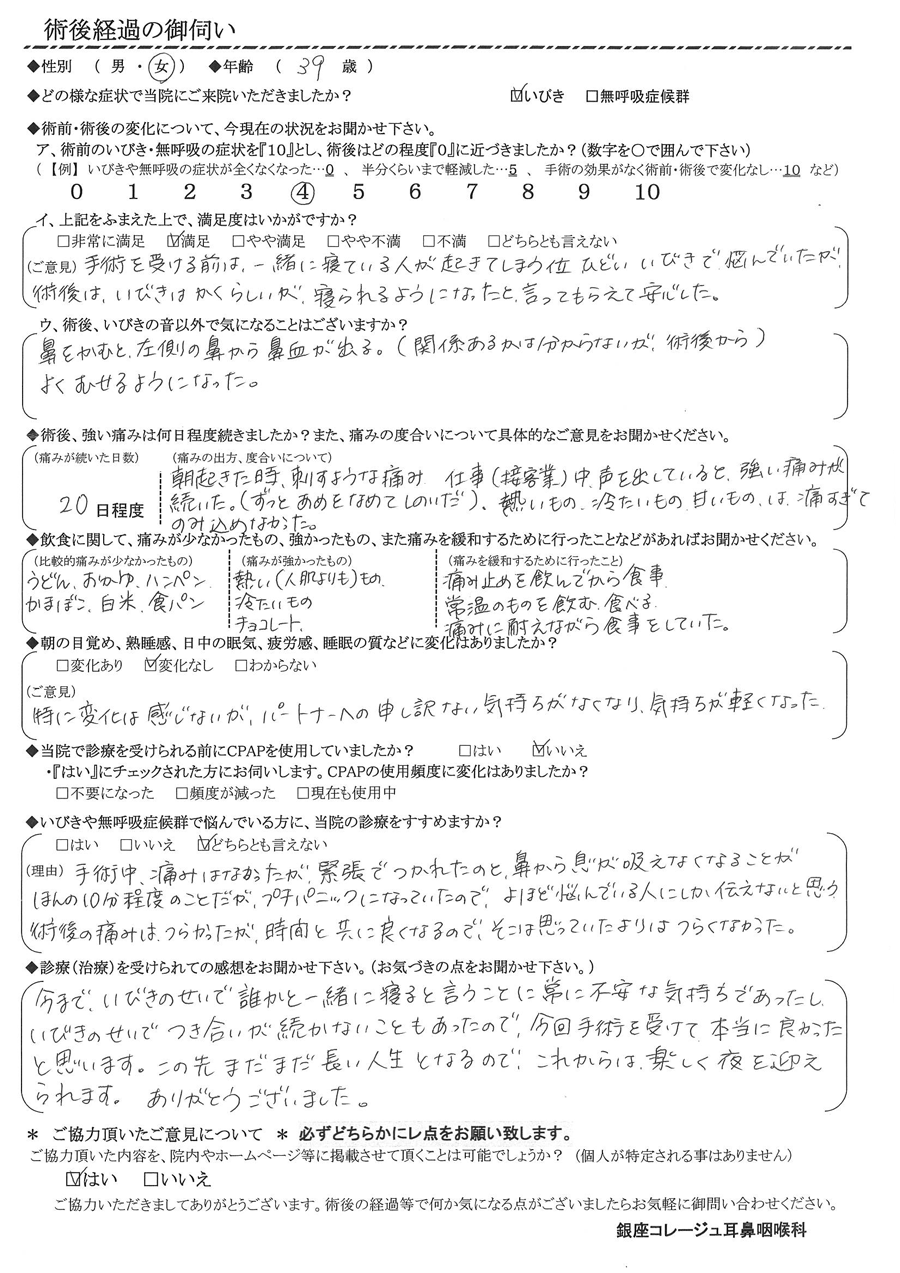 術後経過の御伺い
◆性別 （ 男 ・ 女 ） ◆年齢 （ 39 歳 ）
◆どの様な症状で当院にご来院いただきましたか？ ☑いびき □無呼吸症候群
◆術前・術後の変化について、今現在の状況をお聞かせ下さい。
ア、術前のいびき・無呼吸の症状を『10』とし、術後はどの程度『0』に近づきましたか？（数字を○で囲んで下さい）
（ 【例】 いびきや無呼吸の症状が全くなくなった…0 、 半分くらいまで軽減した…5 、 手術の効果がなく術前・術後で変化なし…10 など）
0 1 2 3 ④ 5 6 7 8 9 10
イ、上記をふまえた上で、満足度はいかがですか？
□非常に満足 ☑満足 □やや満足 □やや不満 □不満 □どちらとも言えない
（ご意見） 手術を受ける前は、一緒に寝ている人が起きてしまう位 ひどい いびきで、悩んでいたが、
術後は、いびきはかくらしいが、寝られるようになったと、言ってもらえて安心した。
ウ、術後、いびきの音以外で気になることはございますか？
鼻をかむと、左側の鼻から鼻血が出る。（関係あるかは分からないが、術後から）
よくむせるようになった。
◆術後、強い痛みは何日程度続きましたか？また、痛みの度合いについて具体的なご意見をお聞かせください。
（痛みが続いた日数） （痛みの出方、度合いについて）
20 日程度
朝起きた時、刺すような痛み 仕事（接客業）中、声を出していると、強い痛みが
続いた。（ずっとあめをなめてしのいだ）、熱いもの、冷たいもの、甘いもの、は、痛すぎて
のみ込めなかった。
◆飲食に関して、痛みが少なかったもの、強かったもの、また痛みを緩和するために行ったことなどがあればお聞かせください。
（比較的痛みが少なかったもの） （痛みが強かったもの） （痛みを緩和するために行ったこと）
うどん、おかゆ、ハンペン、 熱い（人肌よりも）もの、 痛み止めを飲んでから食事、
かまぼこ、白米、食パン 冷たいもの 常温のものを飲む、食べる、
チョコレート、 痛みに耐えながら食事をしていた。
◆朝の目覚め、熟睡感、日中の眠気、疲労感、睡眠の質などに変化はありましたか？
□変化あり ☑変化なし □わからない
（ご意見）
特に変化は感じないが、パートナーへの申し訳ない気持ちがなくなり、気持ちが軽くなった。
◆当院で診療を受けられる前にCPAPを使用していましたか？ □はい ☑いいえ
・『はい』にチェックされた方にお伺いします。CPAPの使用頻度に変化はありましたか？
□不要になった □頻度が減った □現在も使用中
◆いびきや無呼吸症候群で悩んでいる方に、当院の診療をすすめますか？
□はい □いいえ ☑どちらとも言えない
（理由） 手術中、痛みはなかったが、緊張でつかれたのと、鼻から息が吸えなくなることが
ほんの10分程度のことだが、プチパニックになっていたので、よほど悩んでいる人にしか伝えないと思う
術後の痛みは、つらかったが、時間と共に良くなるので、そこは思っていたよりはつらくなかった。
◆診療（治療）を受けられての感想をお聞かせ下さい。（お気づきの点をお聞かせ下さい。）
今まで、いびきのせいで誰かと一緒に寝ると言うことに常に不安な気持ちであったし、
いびきのせいでつき合いが続かないこともあったので、今回手術を受けて本当に良かった
と思います。この先まだまだ長い人生となるので、これからは、楽しく夜を迎え
られます。 ありがとうございました。
＊ ご協力頂いたご意見について ＊ 必ずどちらかにレ点をお願い致します。
ご協力頂いた内容を、院内やホームページ等に掲載させて頂くことは可能でしょうか？（個人が特定される事はありません）
☑はい □いいえ
ご協力いただきましてありがとうございます。術後の経過等で何か気になる点がございましたらお気軽に御問い合わせください。
銀座コレージュ耳鼻咽喉科